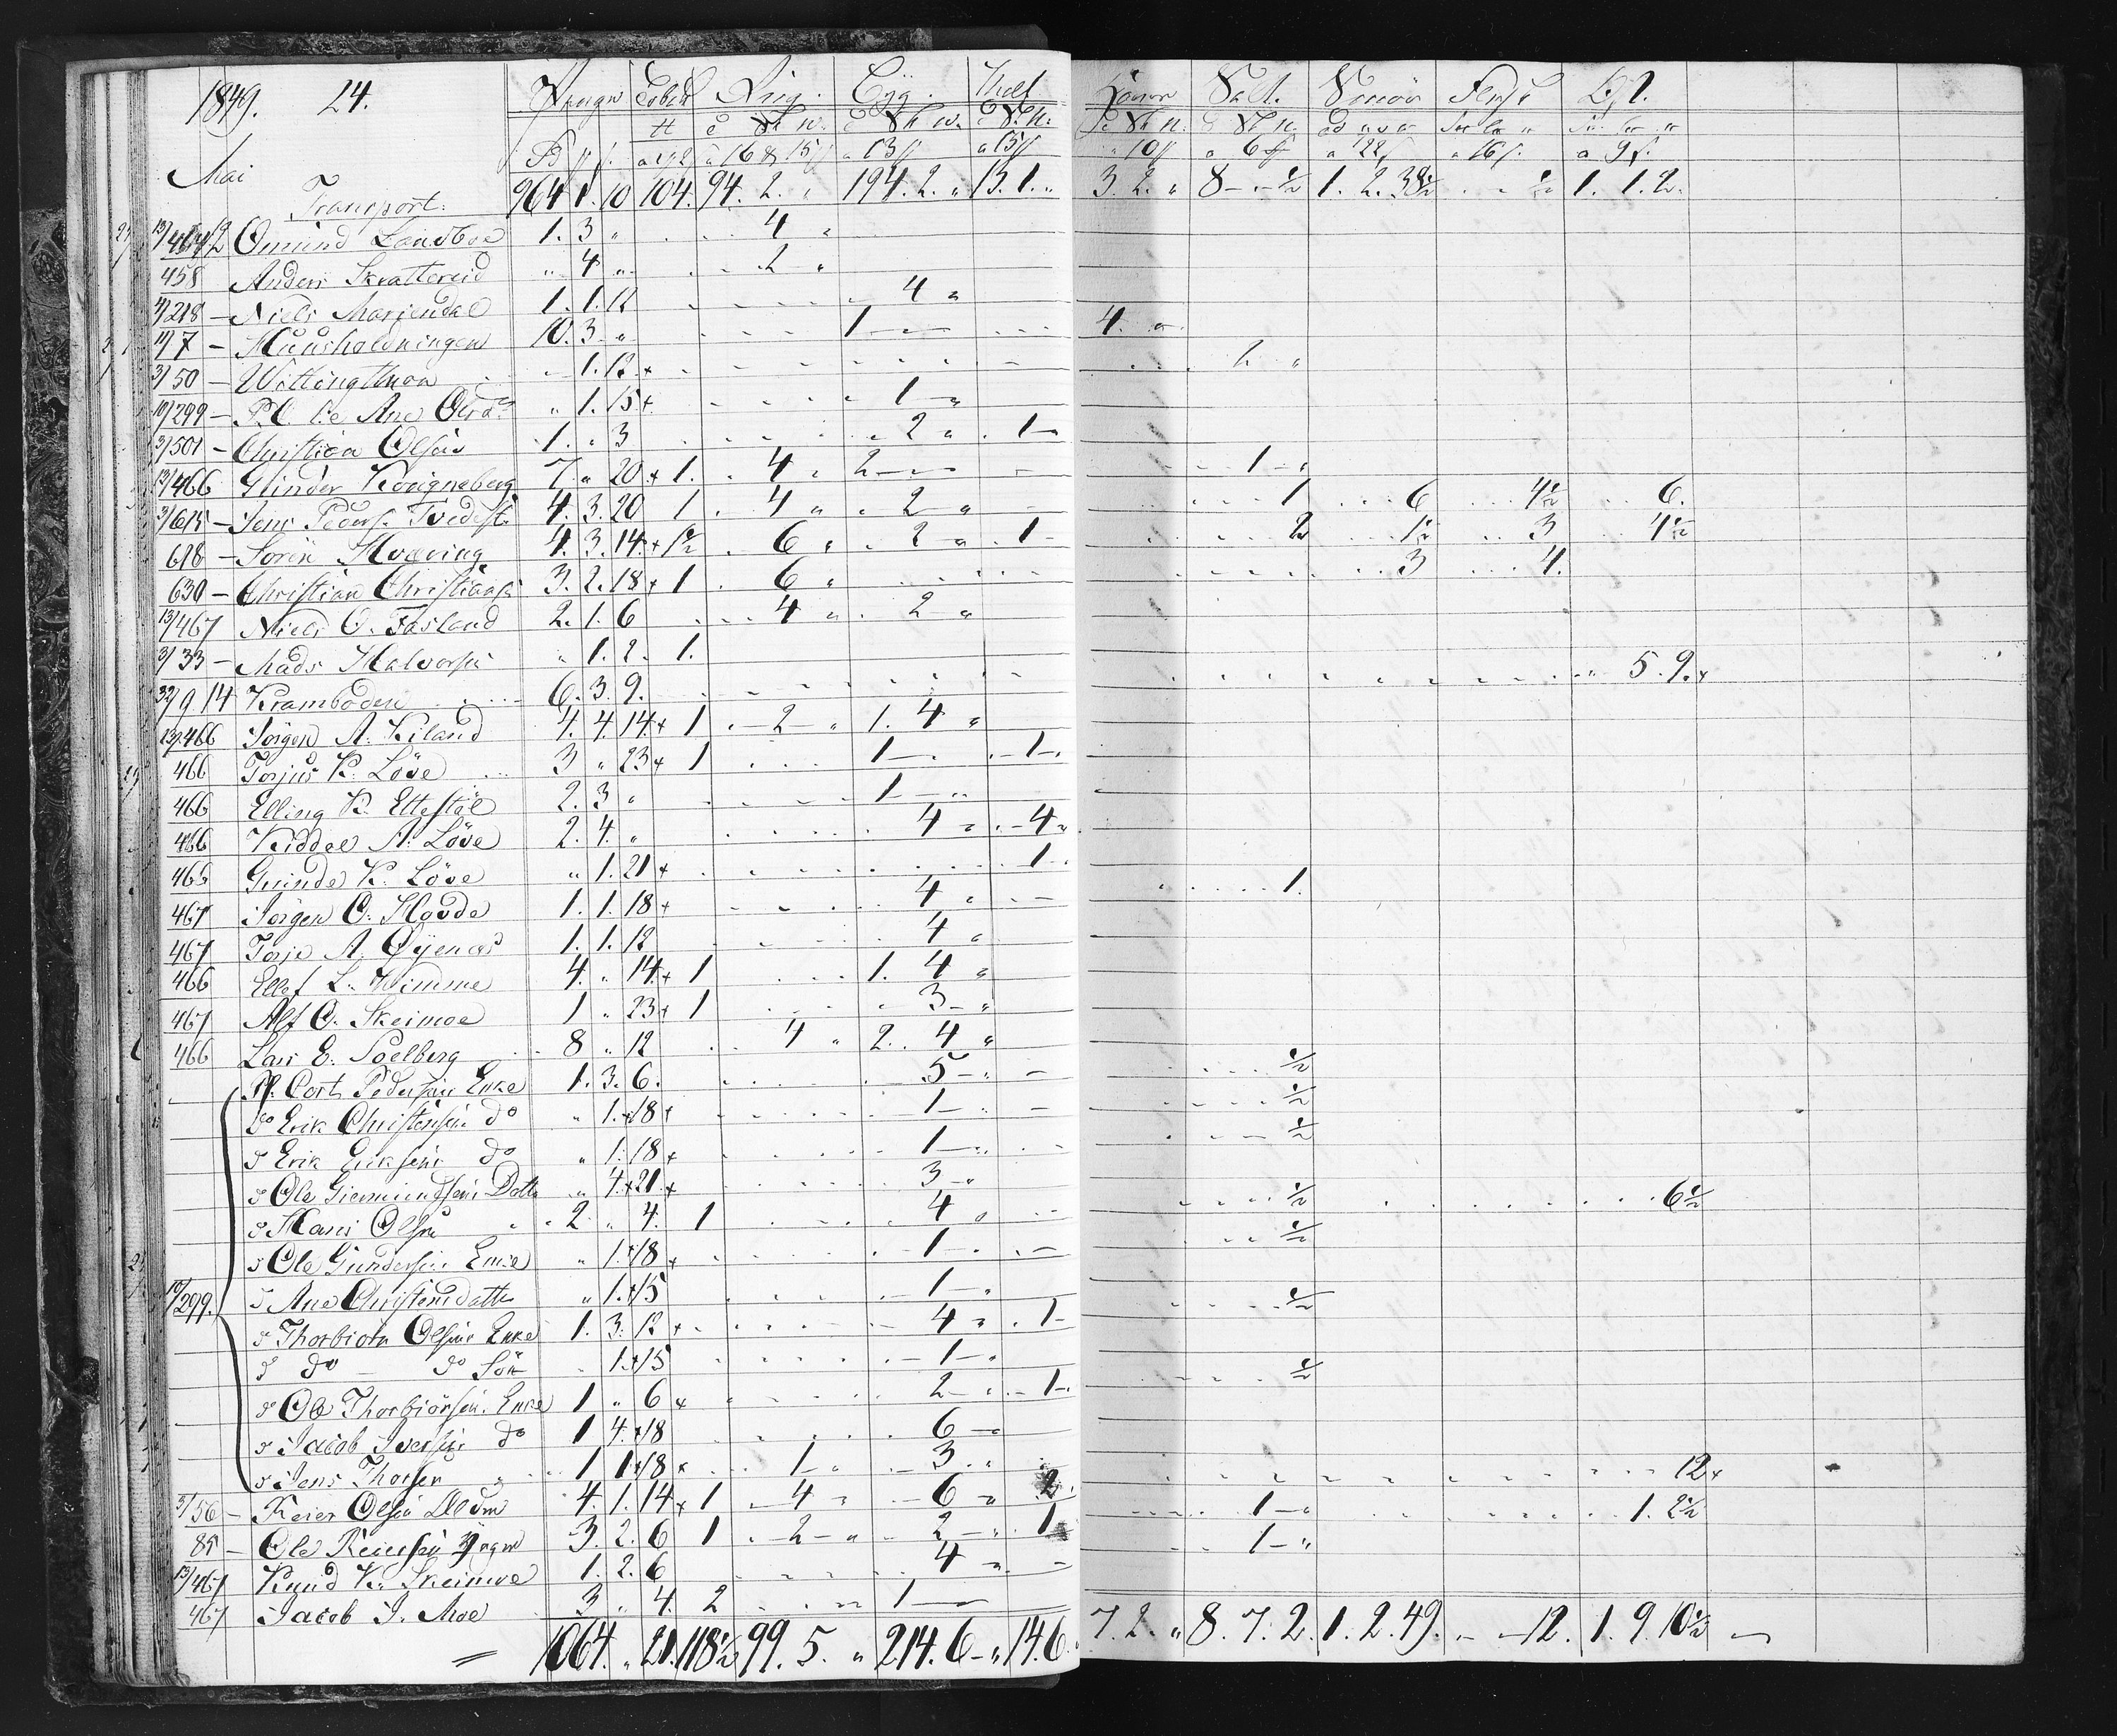 1849. 24. Penge Tobak Rug. Byg. Malt Salt. Smör
Mai
Transport. 964 1. 10 104. 94. 2. „ 194. 2. „ 13. 1. „ 3. 2. „ 8 - - ½ 1. 2. 38½ 1. 1. 2.
13/464/2 Omund Landboe 1. 3 „ 4 „
458 Anders Skrattereid „ 4 „ 2 „
4/218 - Niels Marjendal 1. 1. 12 4 „
11/7 - Huusholdningen 10. 3 „ 1 - - 4. „
3/50 - 1. 12 + 2 „
10/299 - „ 1. 15 + 1 - „
3/501 - Christian Olsen 1. „ 3 2 „ 1 -
13/466 Glinder Kongneberg 7 „ 20 + 1. 4 „ 2 - - 1 - „
3/615 - Jens Peders. Tvedest. 4. 3. 20 1 4 „ 2 „ 1 6 4½ 6.
618 - Sören Hvæving 4. 3. 14 + 1½ 6 „ 2 „ 1 - 2 1½ 3 4½
630 - Christian Christians. 3. 2. 18 + 1 6 „ 3 4.
13/467 Niels O. Fasland 2. 1. 6 4 „ 2 „
3/33 - Mads Halvorsen „ 1. 2. 1.
32/9 14 Kramboden 6. 3. 9. 5. 9. +
13/466 Jörgen A. Kiland 4. 4. 14 + 1 2 - „ 1. 4 „
466 Torjus K. Löve 3 „ 23 + 1 1 - . 1 -
466 Elling K. Ettestöl 2. 3 „ 1 - „
466 Kiddel A. Löve 2. 4. „ 4 „ 4 „
466 Gunder K. Löve „ 1. 21 + 1 - 1.
467 Jörgen O. Hovde 1. 1. 18 + 4 „
467 Torje A. Öyenæs 1. 1. 12 4 „
466 Ellef L. Wimme 4. „ 14 + 1 1. 4 „
467 Alf O. Skeimoe 1 „ 23 + 1 3 - „
466 Lars E. Soelberg 8 „ 12 4 „ 2. 4 „
Pl. Cort Pedersen Enke 1. 3. 6. 5 - „ ½
do Erik Christensen do „ 1. + 18 + 1 - „ ½
d Erik Eriksen do „ 1. 18 + 1 - „ ½
d Ole Giermundsens Datter „ 4. + 21 + 3 - „
d Hans Olsen 2 „ 4. 1 4 „ ½ 6½
d Ole Gundersen Enke „ 1. + 18 + 1 - ½
10/299. d Ane Christensdatter „ 1. + 15 1 - „
d Thorbiörn Olsens Enke 1. 3. 12 + 4 „ 1 - ½
d do - do Sön 1. + 15 1 - „
d Ole Thorbiörnsen. Enke 1 „ 6 + 2 - „ 1 - ½
d Jacob Iversen do 1 4. + 18 6 - „
d Jens Thorsen 1 1 + 18 + 1 „ 3 „
3/56 - Reier Olsen 4. 1. 14 + 1 4 „ 6 „ 2. 12 +
85 - Ole Reiersen 3. 2. 6 1 2 - „ 2 - „ 1 1 - „ 1. 2½
13/467 Knud K. Skeimoe 1. 2. 6 4 „ 1 - „
467 Jacob J. Moe 3 „ 4. 2 1 - -
1064. „ 21. 118½ 99. 5. „ 214. 6 - „ 14. 6. 7. 2. „ 8. 7. 2. 1. 2. 49. - - 12. 1. 9. 10½